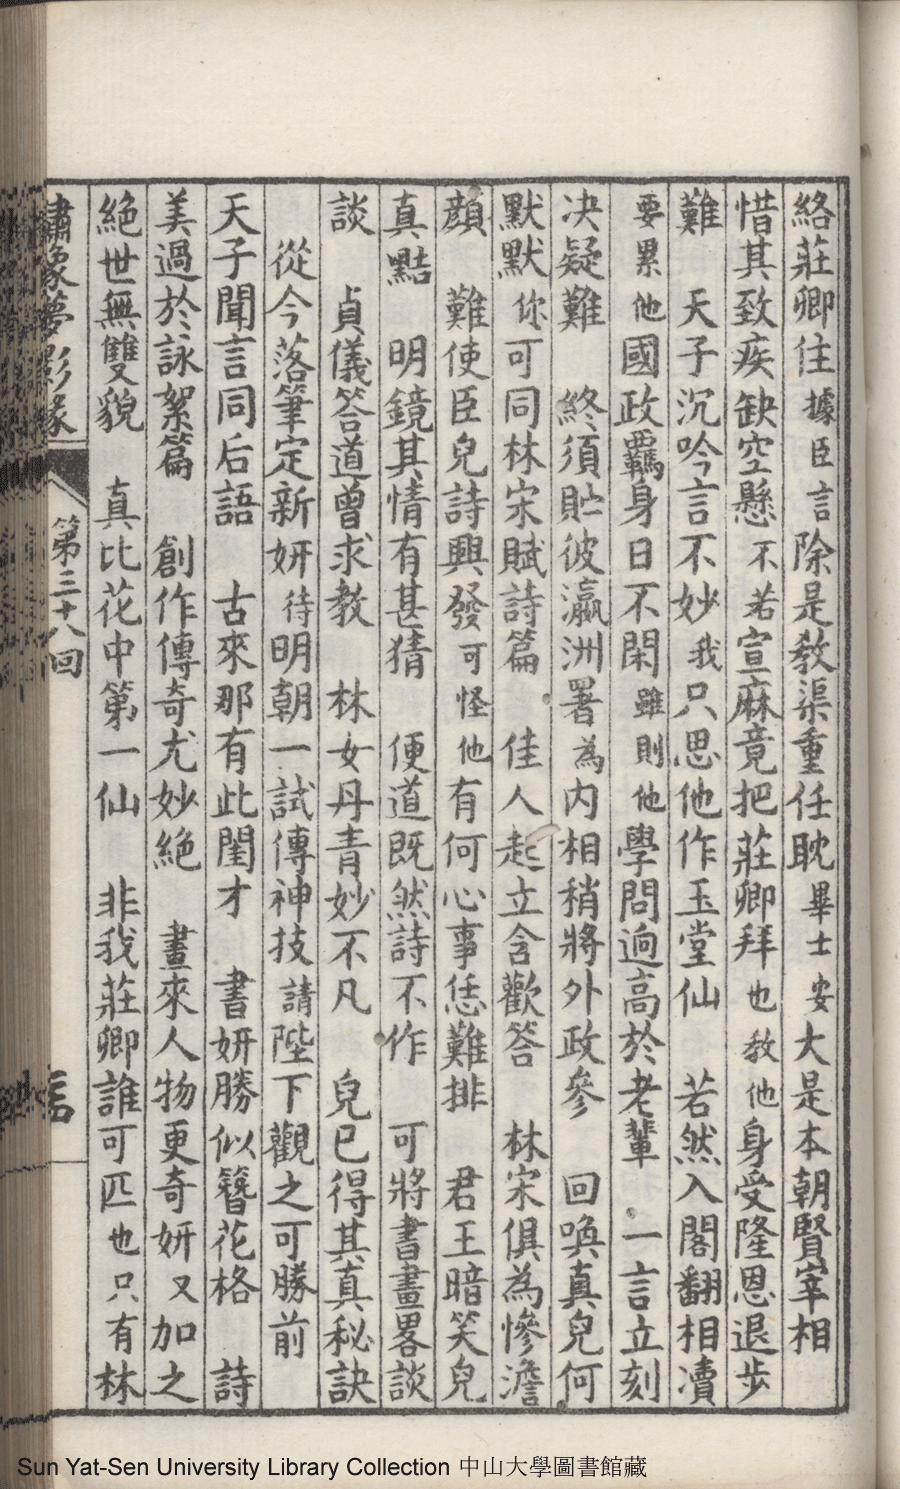 絡莊卿住據臣言除是教渠重任耽畢士安大是本朝賢宰相
惜其致疾缺空懸不若宣麻竟把莊卿拜也教他身受隆恩退步
難　天子沉吟言不妙我只思他作玉堂仙　若然入閣翻相瀆
要累他國政羈身日不閑雖則他學問逈高於老輩　一言立刻
决疑難　終須貯彼瀛洲署為内相稍將外政參　回喚真兒何
默默你可同林宋賦詩篇　佳人起立含歡答　林宋俱為慘澹
顔　難使臣兒詩興發可怪他有何心事恁難排　君王暗笑兒
真黠　明鏡其情有甚猜　便道既然詩不作　可將書畫畧談
談　貞儀答道曾求教　林女丹青妙不凡　兒已得其真秘訣
從今落筆定新妍待明朝一試傳神技請陛下觀之可勝前
天子聞言同后語　古來那有此閨才　書妍勝似簪花格　詩
美過於詠絮篇　創作傳奇尤妙絕　畫來人物更奇妍又加之
絕世無雙貌　真比花中第一仙　非我莊卿誰可匹也只有林
繡像夢影緣
第三十八回
Sun Yat-Sen University Library Collection 中山大學圖書館藏